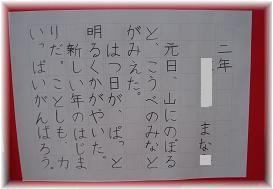 二年
まな
元日、山にのぼる
と、こうべのみなと
がみえた。
はつ日が、ぱっと
明るくかがやいた。
新しい年のはじま
りだ。ことしも、力
いっぱいがんばろう。